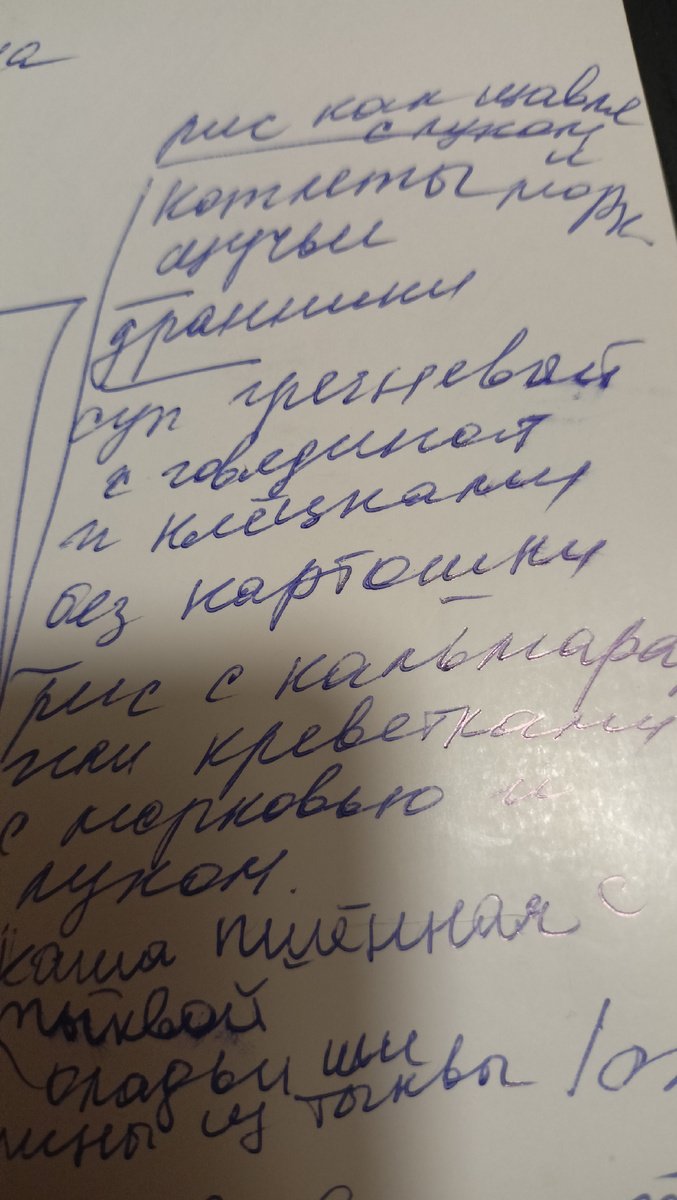 рис как щавля
с луком
и
котлеты морк
щучьи
дранники
суп гречневый
с говядиной
и клёцками
без картошки
рис с кальмара
или креветками
с морковью и
луком.
каша пшённая с
тыквой
оладьи или
из тыквы